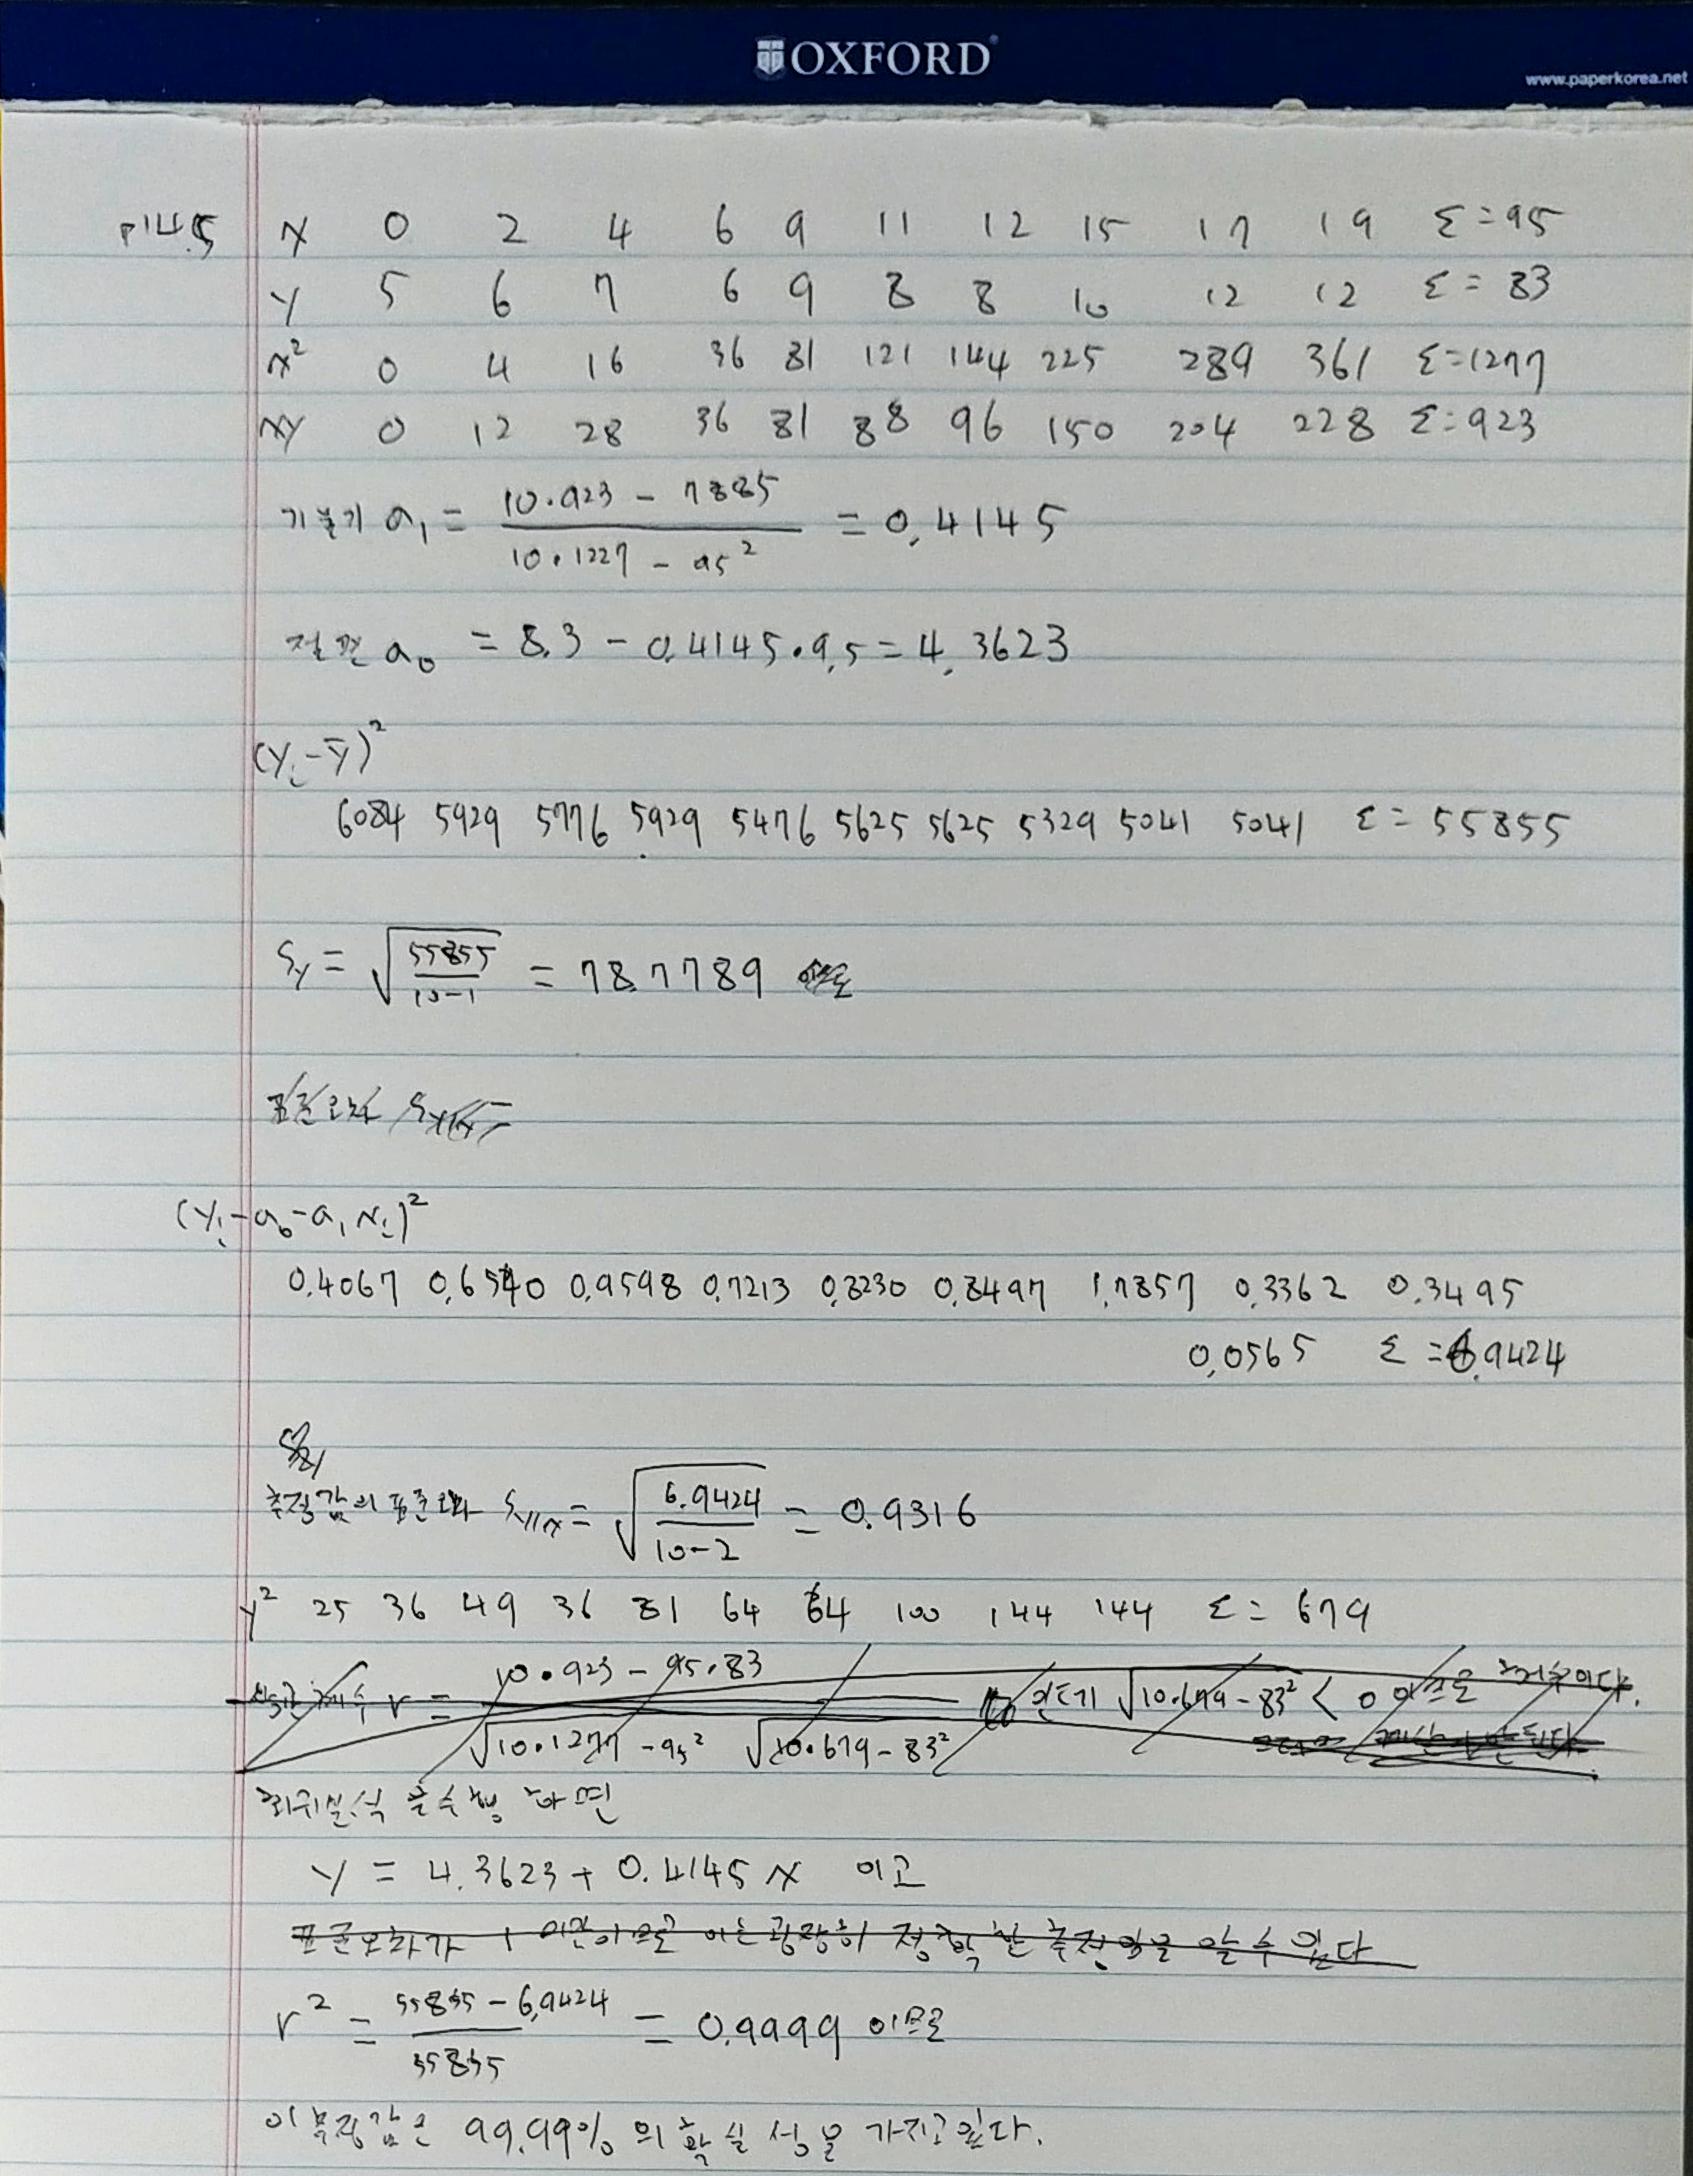 OXFORD
www.paperkorea.net
P14.5 x 0 2 4 6 9 11 12 15 17 19 Σ=95
y 5 6 7 6 9 8 8 10 12 12 Σ=83
x² 0 4 16 36 81 121 144 225 289 361 Σ=1277
xy 0 12 28 36 81 88 96 150 204 228 Σ=923
기울기 a₁ = (10·923 - 7885) / (10·1227 - 95²) = 0.4145
절편 a₀ = 8.3 - 0.4145·9.5 = 4.3623
(yᵢ-ȳ)²
6084 5929 5776 5929 5476 5625 5625 5329 5041 5041 Σ= 55855
Sy = √(55855 / (10-1)) = 78.7789
표준오차 Sy/x =
(yᵢ-a₀-a₁xᵢ)²
0.4067 0.6540 0.9598 0.7213 0.8230 0.8497 1.7857 0.3362 0.3495
0.0565 Σ=6.9424
추정값의 표준오차 Sy/x = √(6.9424 / (10-2)) = 0.9316
y² 25 36 49 36 81 64 64 100 144 144 Σ= 679
상관계수 r = (10·923 - 95·83) / (√(10·1277-95²) √(10·679-83²)) 인데 √(10·679-83²) < 0 이므로 허수이다.
계산이 안된다
회귀분석을 수행하면
y = 4.3623 + 0.4145 x 이고
표준오차가 1 미만이므로 이는 굉장히 정확한 추정임을 알 수 있다
r² = (55855 - 6.9424) / 55855 = 0.9999 이므로
이 추정값은 99.99% 의 확실성을 가지고 있다.